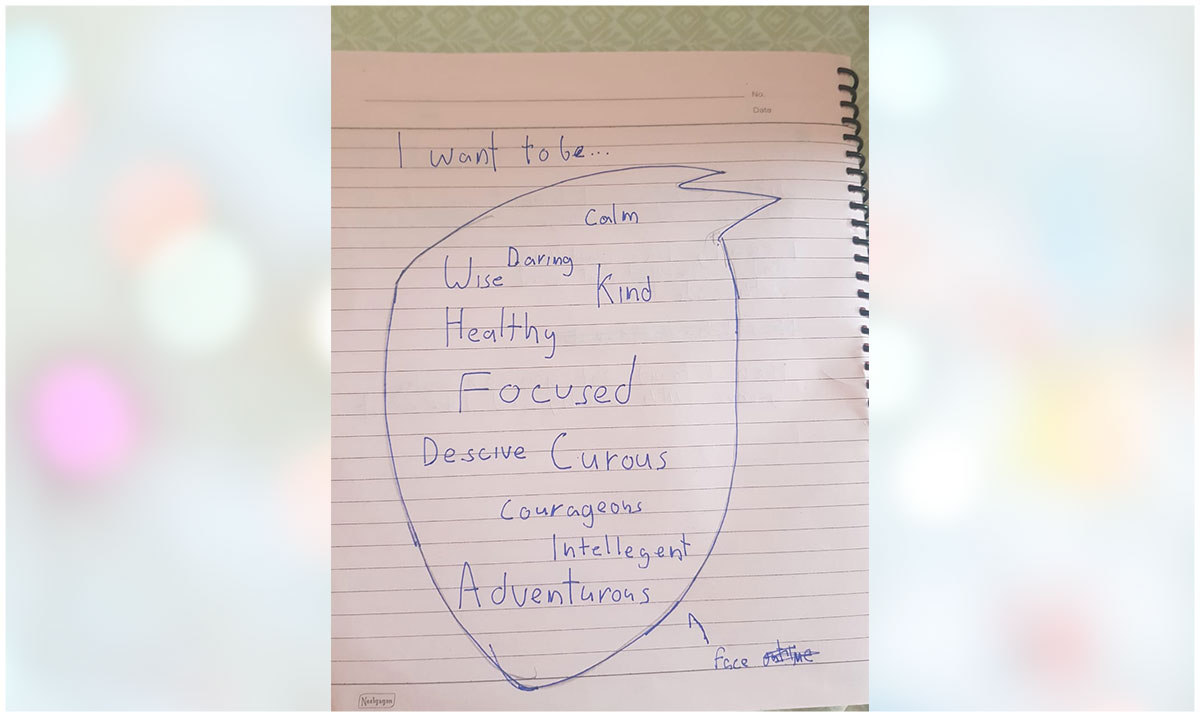 No.
Date
I want to be...
Calm
Daring
Wise Kind
Healthy
Focused
Descive Curous
Courageous
Intellegent
Adventurous
face